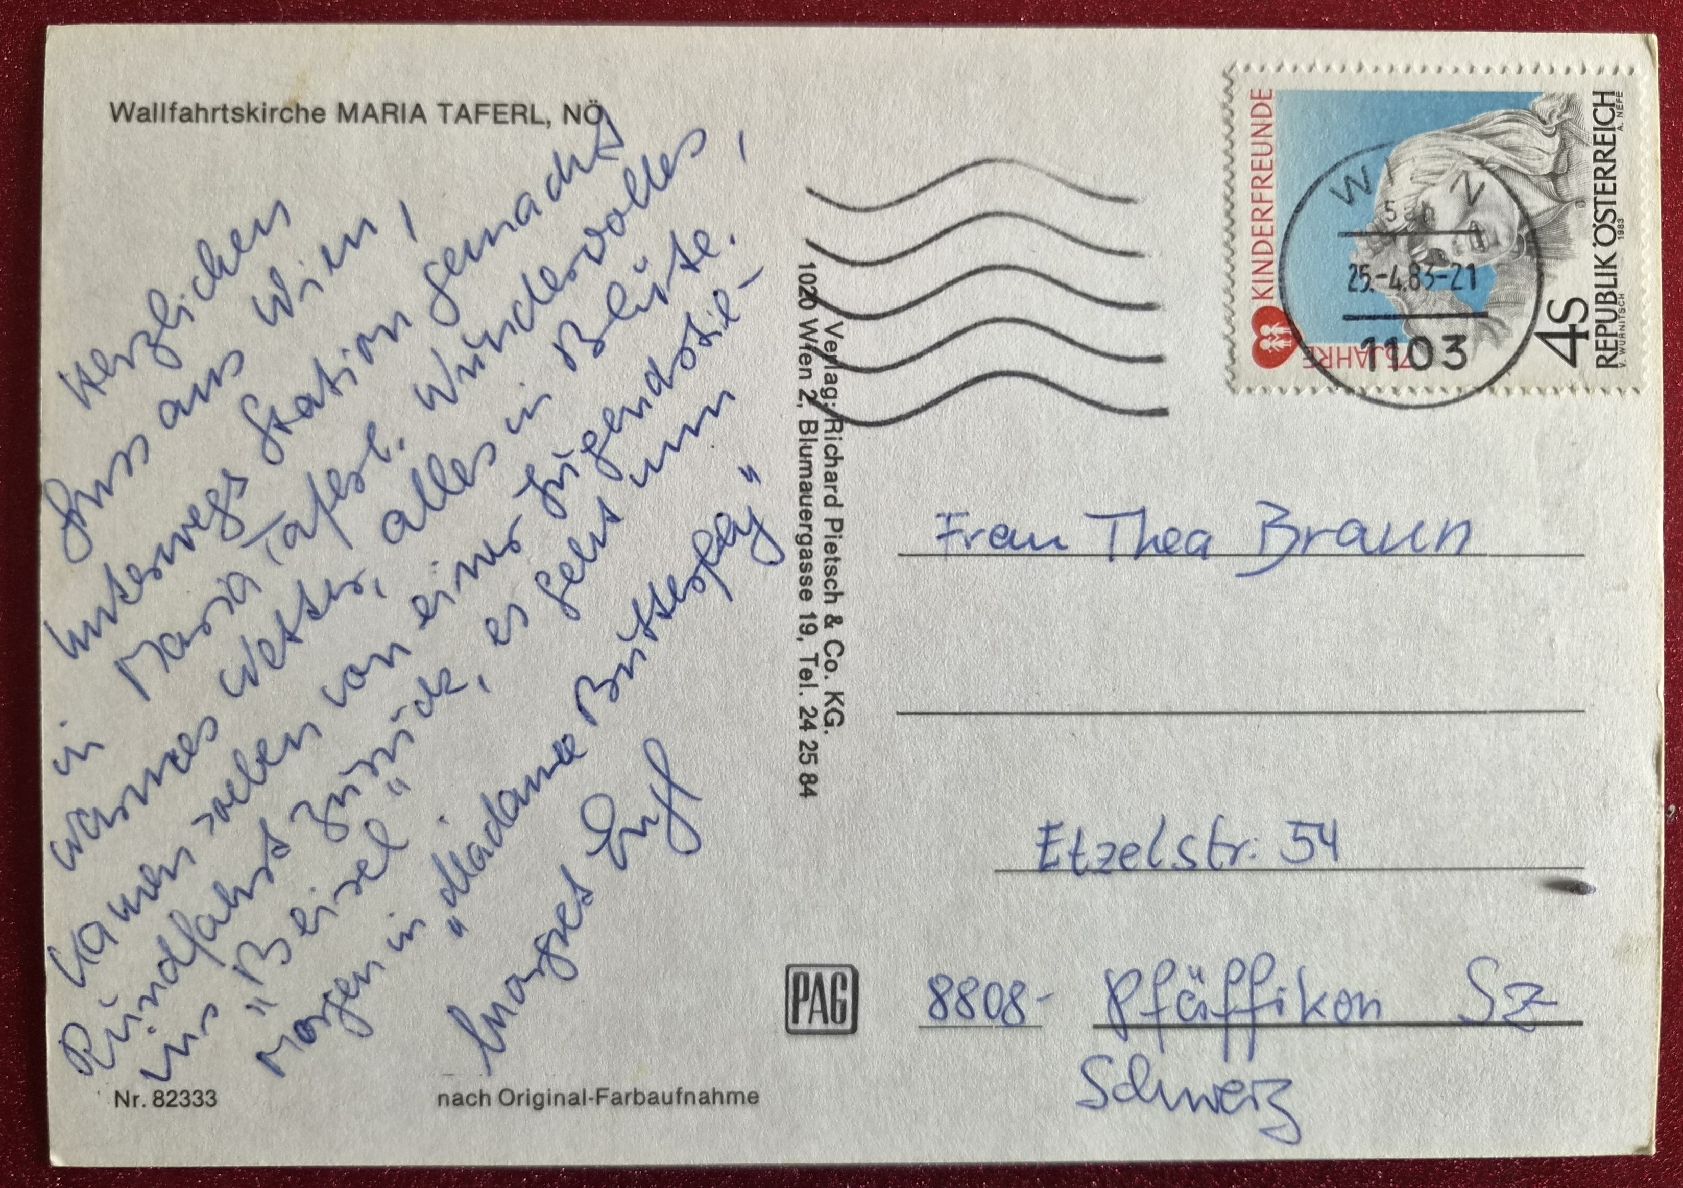 Wallfahrtskirche MARIA TAFERL, NÖ
Herzlichen
Gruss aus Wien,
Unterwegs Station gemacht
in Maria Taferl. Wundervolles,
warmes Wetter, alles in Blüte.
Kamen soeben von einer Jugendstil-
Rundfahrt zurück, es geht nun
ins "Beisel".
Morgen in "Madame Butterfly"
Margret
Nr. 82333
nach Original-Farbaufnahme
Verlag: Richard Pietsch & Co. KG.
1020 Wien 2, Blumauergasse 19, Tel. 24 25 84
PAG
75 JAHRE KINDERFREUNDE
4S
REPUBLIK ÖSTERREICH
V. WURNITSCH 1983 A. NEFE
WIEN
25.-4.83-21
1103
Frau Thea Braun
Etzelstr. 54
8808- Pfäffikon SZ
Schweiz